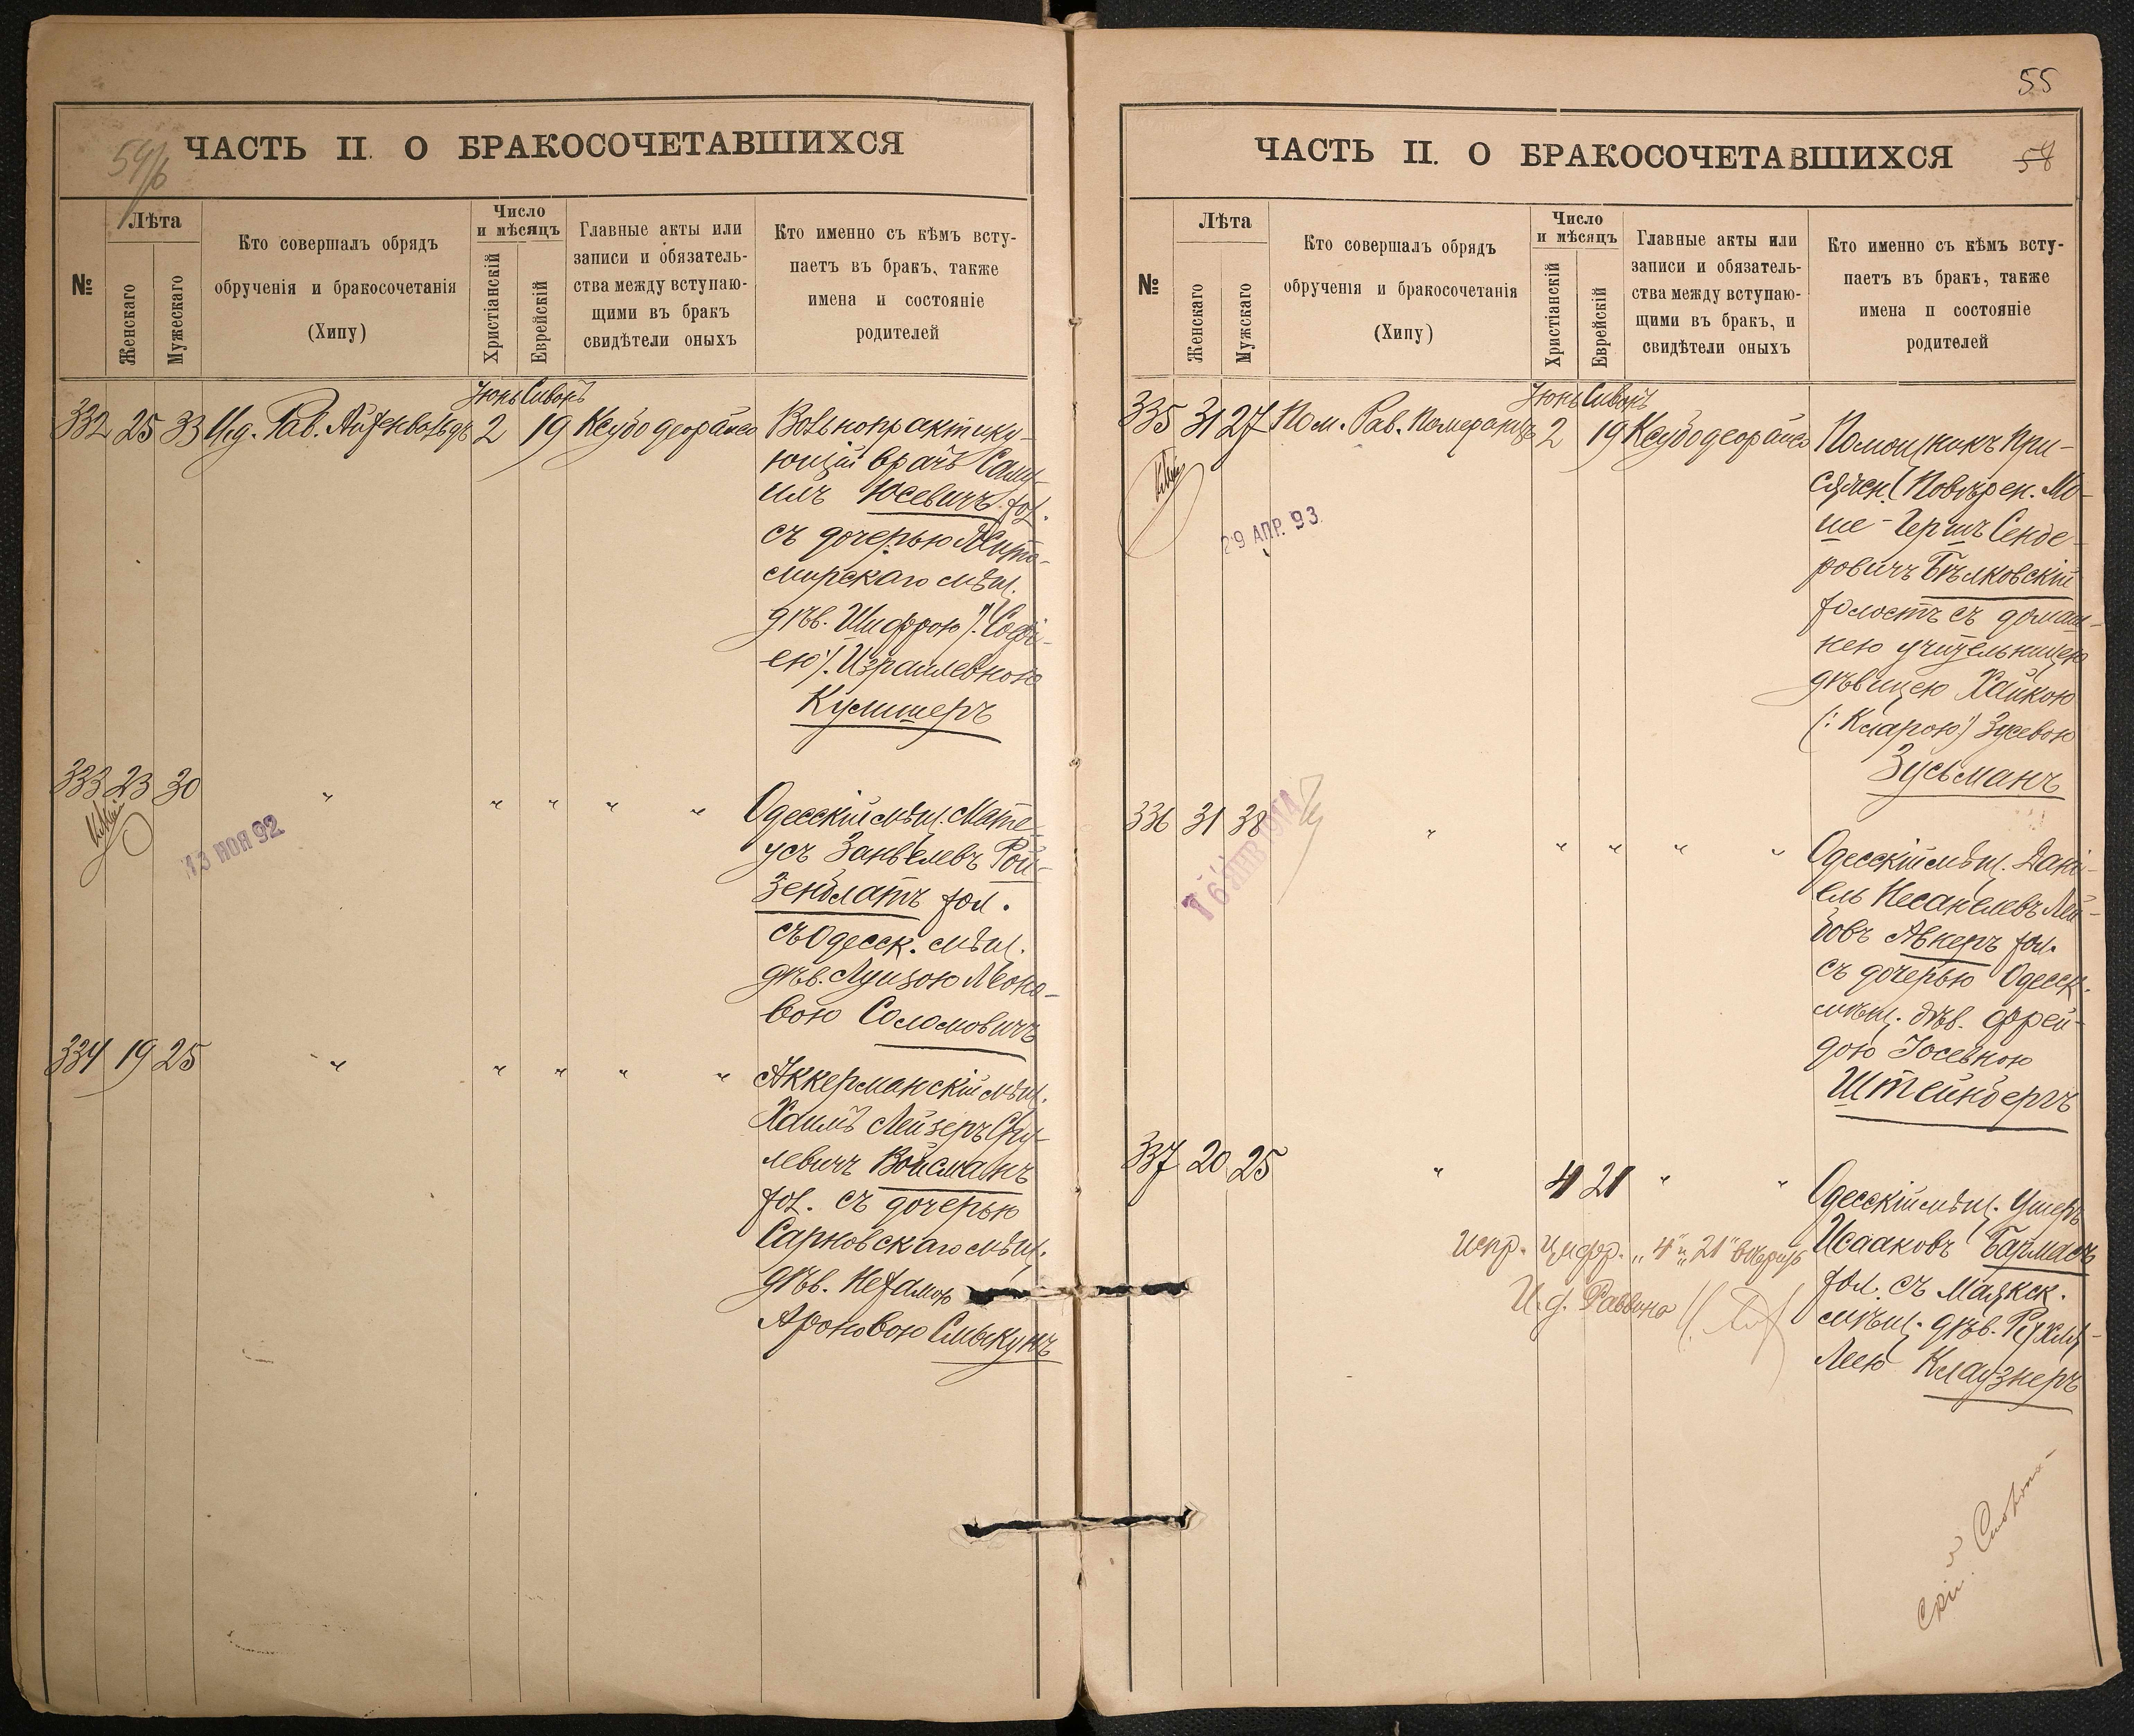 54/б
ЧАСТЬ II. О БРАКОСОЧЕТАВШИХСЯ
№
Лѣта
Женскаго
Мужескаго
Кто совершалъ обрядъ
обрученія и бракосочетанія
(Хипу)
Число
и мѣсяцъ
Христіанскій
Еврейскій
Главные акты или
записи и обязатель-
ства между вступаю-
щими въ бракъ
свидѣтели оныхъ
Кто именно съ кѣмъ всту-
паетъ въ бракъ, также
имена и состояніе
родителей
Іюнь Сивонъ
332 25 33 И.д. Рав. Айзенвальдъ 2 19 Ксубо деорайсо
Вольнопрактику-
ющій врачъ Саму-
илъ Юсевичъ хол.
съ дочерью Жито-
мирскаго мѣщ.
дѣв. Шифрою /:Софі-
ею:/ Израилевною
Кулишеръ
333 23 30 " " " " "
13 НОЯ 92
Одесскій мѣщ. Мате-
усъ Занвелевъ Рой-
зенблатъ хол.
съ Одесск. мѣщ.
дѣв. Луизою Леоно-
вою Соломовичъ
334 19 25 " " " " "
Аккерманскій мѣщ.
Хаимъ Лейзеръ Сру-
левичъ Войсманъ
хол. съ дочерью
Сарновскаго мѣщ.
дѣв. Нехамою
Ароновою Смыкунъ
55
ЧАСТЬ II. О БРАКОСОЧЕТАВШИХСЯ
54
№
Лѣта
Женскаго
Мужскаго
Кто совершалъ обрядъ
обрученія и бракосочетанія
(Хипу)
Число
и мѣсяцъ
Христіанскій
Еврейскій
Главные акты или
записи и обязатель-
ства между вступаю-
щими въ бракъ, и
свидѣтели оныхъ
Кто именно съ кѣмъ всту-
паетъ въ бракъ, также
имена и состояніе
родителей
Іюнь Сивонъ
335 31 27 Пом. Рав. Померанцъ 2 19 Ксубо деорайсо
29 АПР. 93
Помощникъ При-
сяжн. Повѣрен. Мо-
ше-Гершъ Сенде-
ровичъ Бѣлковскій
холостъ съ домаш-
нею учительницею
дѣвицею Хайкою
(:Кларою:) Зусевою
Зусьманъ
336 31 38 " " " " "
16 ЯНВ 1914
Одесскій мѣщ. Дані-
ель Несанелевъ Лей-
бовъ Авнеръ хол.
съ дочерью Одесск.
мѣщ. дѣв. Фрей-
дою Іосевною
Штейнбергъ
337 20 25 " 4 21 " "
Одесскій мѣщ. Ушеръ
Исааковъ Бармасъ
хол. съ Маякск.
мѣщ. дѣв. Рухля-
Леею Клаузнеръ
Испр. цифр. „4" и „21" вѣрить
И.д. Раввина